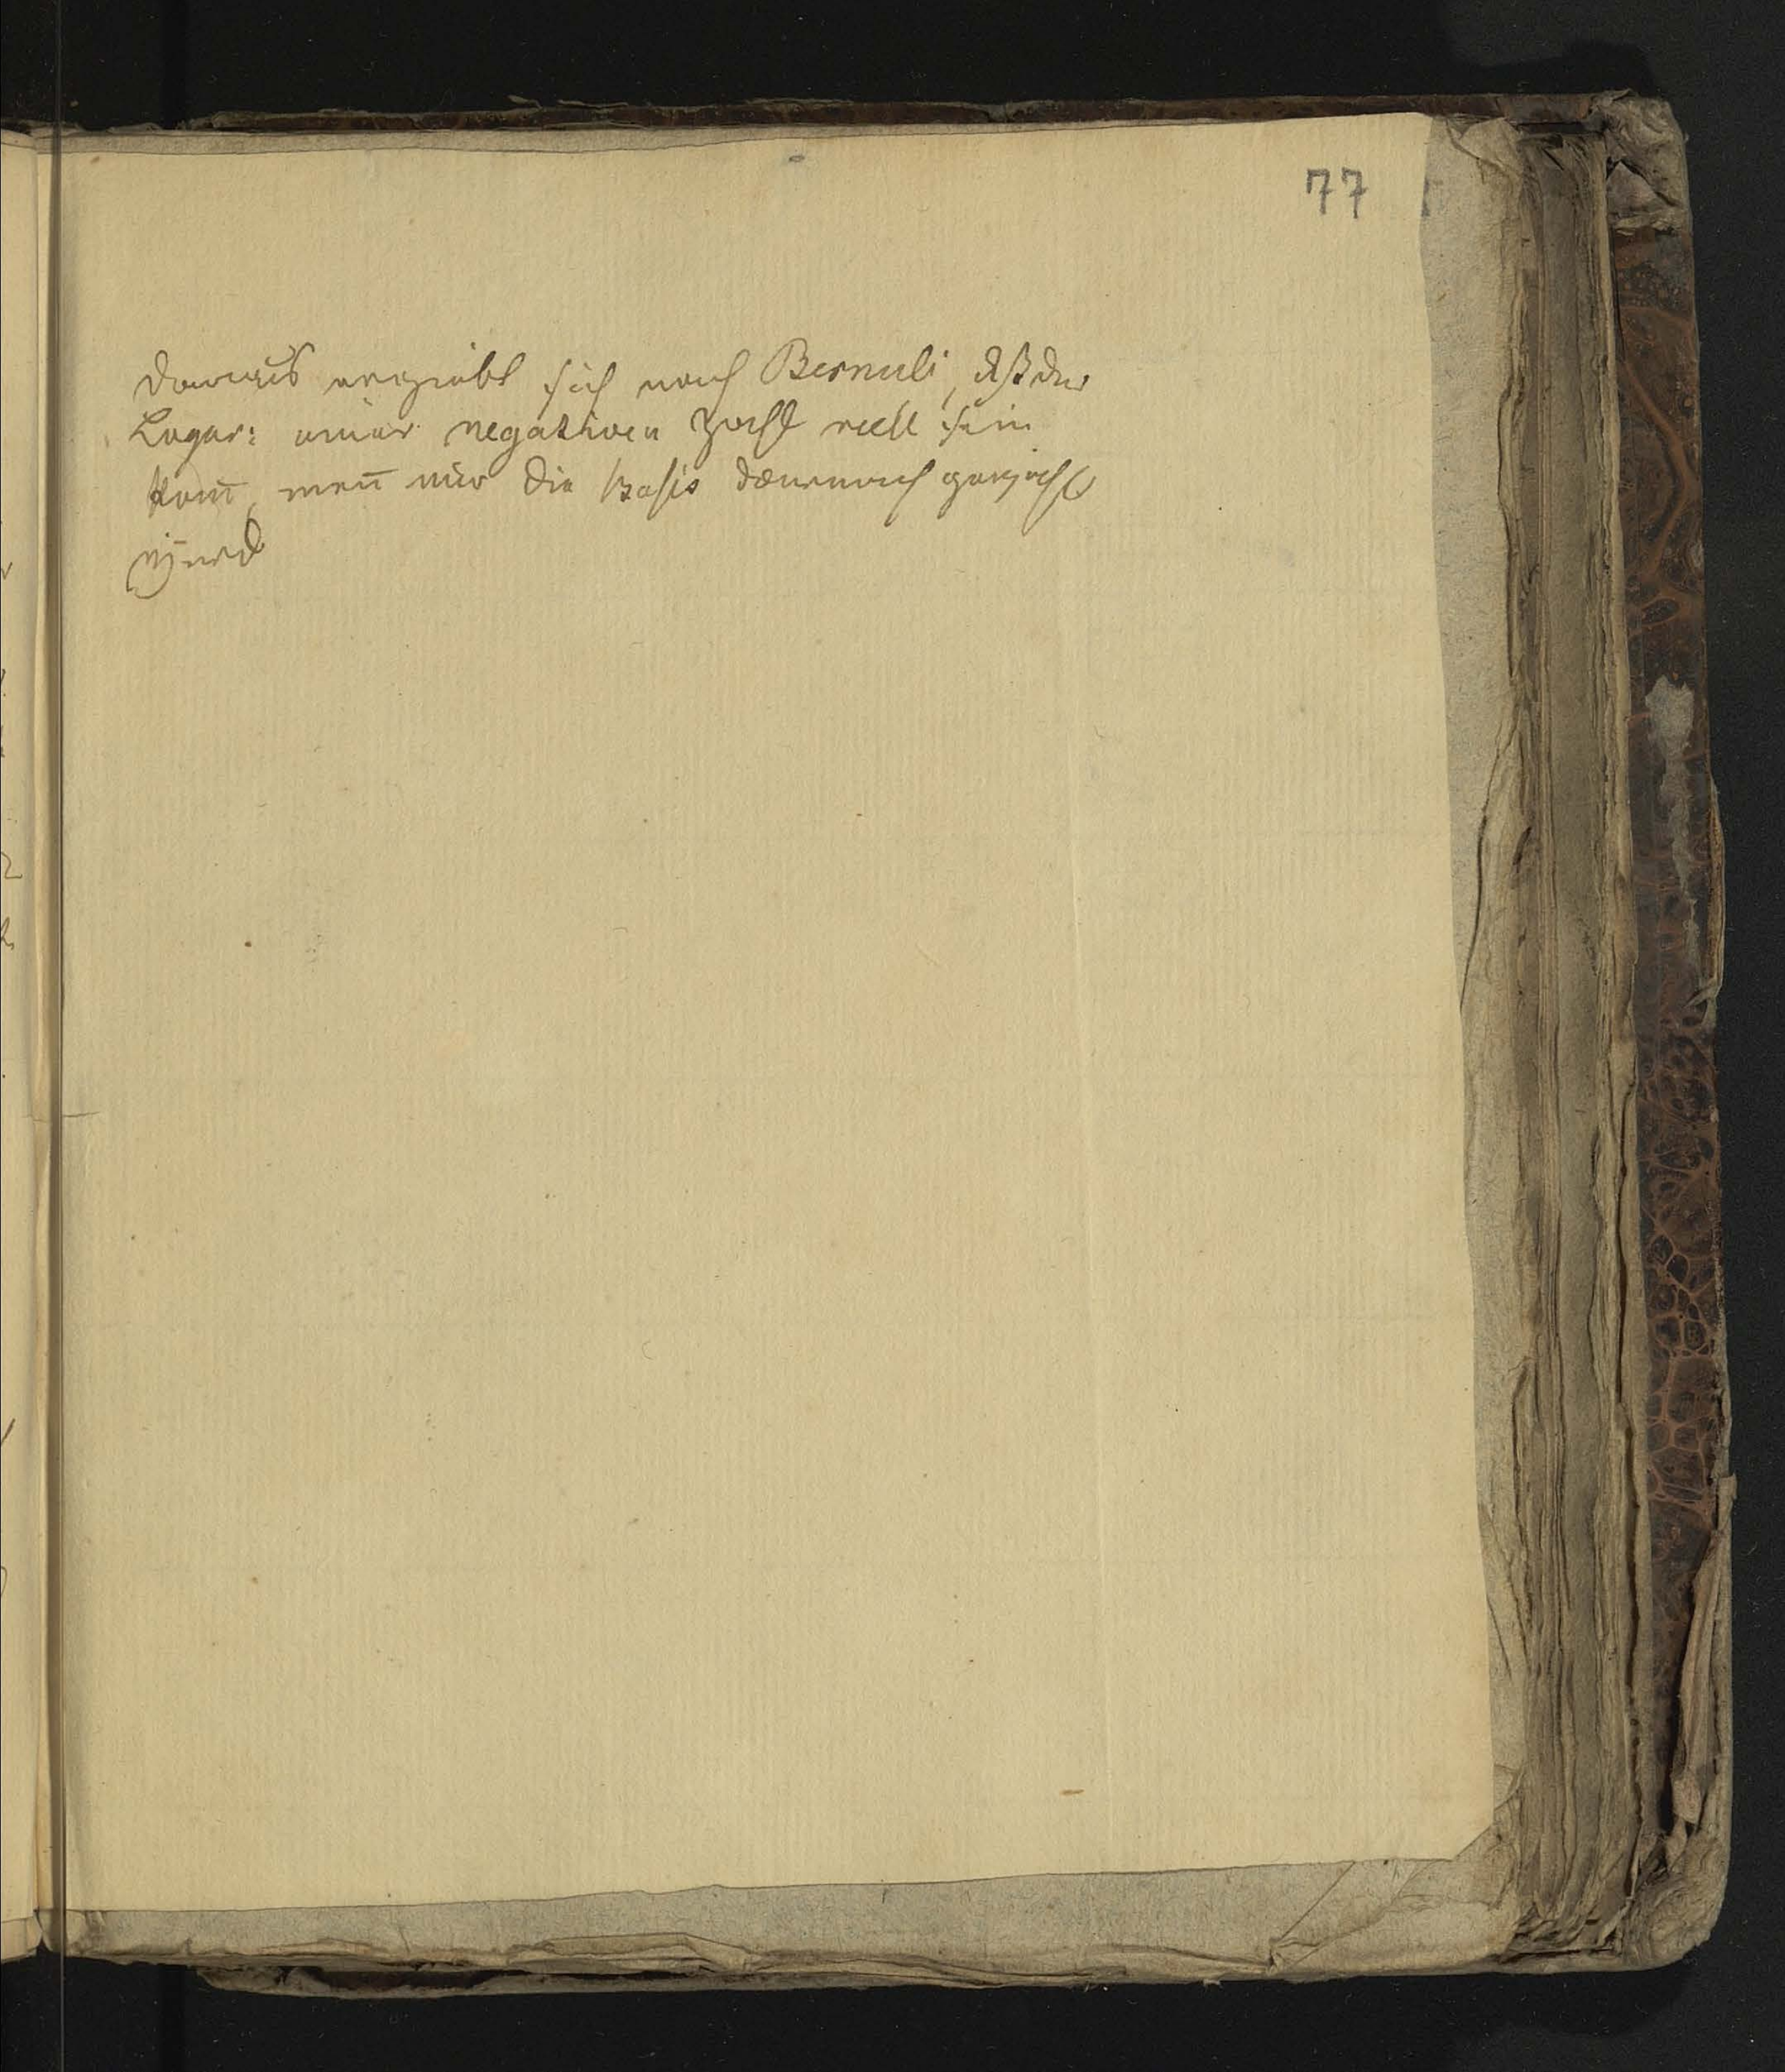 77
Daraus ergiebt sich nach Bernuli, dß der
Logar: einer negativen Zahl reell sein
kañ, weñ nur die Basis darnach gewählt
wird